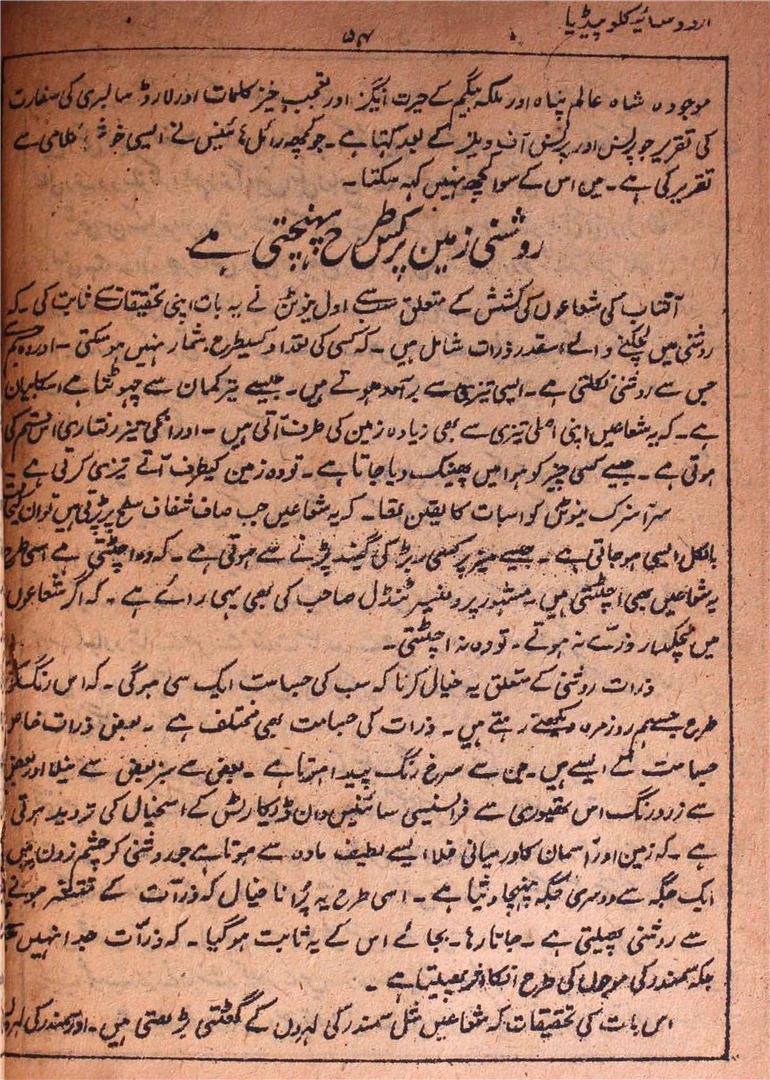 اردو سائیکلو پیڈیا
۵۴
موجودہ شاہ عالم پناہ اور ملکہ بیگم کے حیرت انگیز اور تعجب خیز کلمات اور لارڈ سالبری کی سفارت
کی تقریر جو پرنس اور پرنسس آف ویلز کے بعد کہتا ہے۔ جو کچھ رائل ہائینس نے ایسی خوش کلامی سے
تقریر کی ہے۔ میں اس کے سوا کچھ نہیں کہہ سکتا۔
روشنی زمین پر کس طرح پہنچتی ہے
آفتاب کی شعاعوں کی کشش کے متعلق سب سے اول نیوٹن نے یہ بات اپنی تحقیقات سے ثابت کی۔ کہ
روشنی میں لچکنے والے اسقدر ذرات شامل ہیں۔ کہ کسی کی تعداد کسیطرح شمار نہیں ہو سکتی۔ اور وہ جسم
جس سے روشنی نکلتی ہے۔ ایسی تیزی سے برآمد ہوتے ہیں۔ جیسے تیر کمان سے چھوٹتا ہے اسکا بیان
ہے۔ کہ یہ شعاعیں اپنی اصلی تیزی سے بھی زیادہ زمین کی طرف آتی ہیں۔ اور انکی تیز رفتاری اس قسم کی
ہوتی ہے۔ جیسے کسی چیز کو ہوا میں پھینک دیا جاتا ہے۔ تو وہ زمین کیطرف آتے تیزی کرتی ہے۔
سر آئزک نیوٹن کو اسبات کا یقین تھا۔ کہ یہ شعاعیں جب صاف شفاف سطح پر پڑتی ہیں تو ان کی
بالکل ایسی ہو جاتی ہے۔ جیسے میز پر کسی ربڑ کی گیند پڑنے سے ہوتی ہے۔ کہ وہ اچٹتی ہے اسی طرح
یہ شعاعیں بھی اچٹتی ہیں۔ مشہور پروفیسر ٹنڈل صاحب کی بھی یہی رائے ہے۔ کہ اگر شعاعوں
میں لچکدار ذرّے نہ ہوتے۔ تو وہ نہ اچٹتی۔
ذرات روشنی کے متعلق یہ خیال کرنا کہ سب کی جسامت ایک سی ہوگی۔ کہ اس رنگ کی
طرح جسے ہم روزمرہ دیکھتے رہتے ہیں۔ ذرات کی جسامت بھی مختلف ہے۔ بعض ذرات خاص
جسامت کے ایسے ہیں۔ جن سے سرخ رنگ پیدا ہوتا ہے۔ بعض سے سبز بعض سے نیلا اور بعض
سے زرد رنگ اس تھیوری سے فرانسیسی سائنس دان ڈیکارٹس کے اسخیال کی تردید ہوتی
ہے۔ کہ زمین اور آسمان کا درمیانی خلا ایسے لطیف مادہ سے ہوتا ہے جو روشنی کو چشم زدن میں
ایک جگہ سے دوسری جگہ پہنچا دیتا ہے۔ اسی طرح یہ پُرانا خیال کہ ذرّات کے ہونے
سے روشنی پھیلتی ہے۔ جاتا رہا۔ بجائے اس کے یہ ثابت ہو گیا۔ کہ ذرّات جدا نہیں
بلکہ سمندر کی موجوں کی طرح انکا اثر پھیلتا ہے۔
اس بات کی تحقیقات کہ شعاعیں مثل سمندر کی لہروں کے گھٹتی بڑھتی ہیں۔ اور سمندر کی لہروں